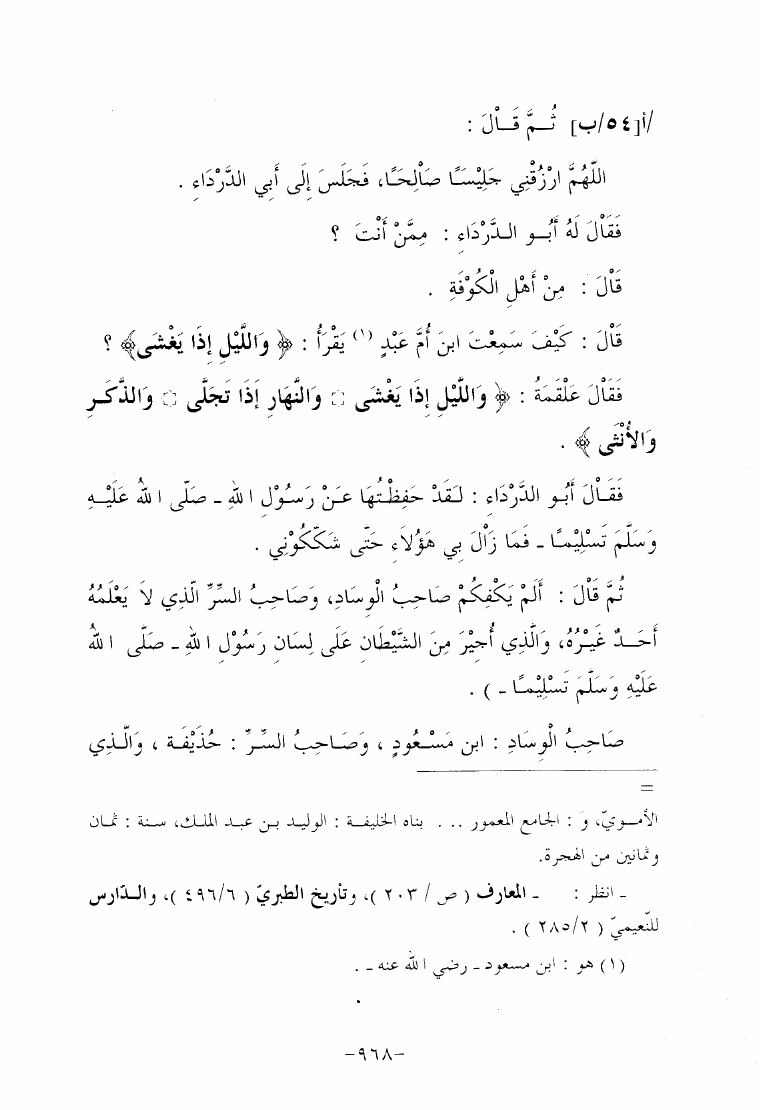 /أ[٥٤/ب] ثُمَّ قَالَ :
اللَّهُمَّ ارْزُقْنِي جَلِيْسَاً صَالِحَاً، فَجَلَسَ إِلَى أَبِي الدَّرْدَاءِ .
فَقَالَ لَهُ أَبُو الدَّرْدَاءِ : مِمَّنْ أَنْتَ ؟
قَالَ : مِنْ أَهْلِ الْكُوْفَةِ .
قَالَ : كَيْفَ سَمِعْتَ ابنَ أُمِّ عَبْدٍ (١) يَقْرَأُ : ﴿ وَاللَّيْلِ إِذَا يَغْشَى﴾ ؟
فَقَالَ عَلْقَمَةُ : ﴿ وَاللَّيْلِ إِذَا يَغْشَى ۝ وَالنَّهَارِ إِذَا تَجَلَّى ۝ وَالذَّكَرِ
وَالأُنْثَى ﴾ .
فَقَالَ أَبُو الدَّرْدَاءِ : لَقَدْ حَفِظْتُهَا عَنْ رَسُوْلِ اللهِ ـ صَلَّى اللهُ عَلَيْهِ
وَسَلَّمَ تَسْلِيْمَاً ـ فَمَا زَالَ بِي هَؤُلاَءِ حَتَّى شَكَّكُوْنِي .
ثُمَّ قَالَ : أَلَمْ يَكْفِكُمْ صَاحِبُ الْوِسَادِ، وَصَاحِبُ السِّرِّ الَّذِي لاَ يَعْلَمُهُ
أَحَدٌ غَيْرُهُ، وَالَّذِي أُجِيْرَ مِنَ الشَّيْطَانِ عَلَى لِسَانِ رَسُوْلِ اللهِ ـ صَلَّى اللهُ
عَلَيْهِ وَسَلَّمَ تَسْلِيْمَاً ـ ) .
صَاحِبُ الْوِسَادِ : ابن مَسْعُودٍ ، وَصَاحِبُ السِّرِّ : حُذَيْفَة ، وَالَّذِي
=
الأمــويّ، و : الجامع المعمور ... بناه الخليفة : الوليد بن عبد الملك، سنة : ثمان
وثمانين من الهجرة.
ـ انظر : ـ المعارف ( ص / ٢٠٣ )، وتأريخ الطبريّ ( ٤٩٦/٦ )، والدّارس
للنّعيميّ ( ٢٨٥/٢ ) .
(١) هو : ابن مسعود ـ رضي الله عنه ـ .
-٩٦٨-